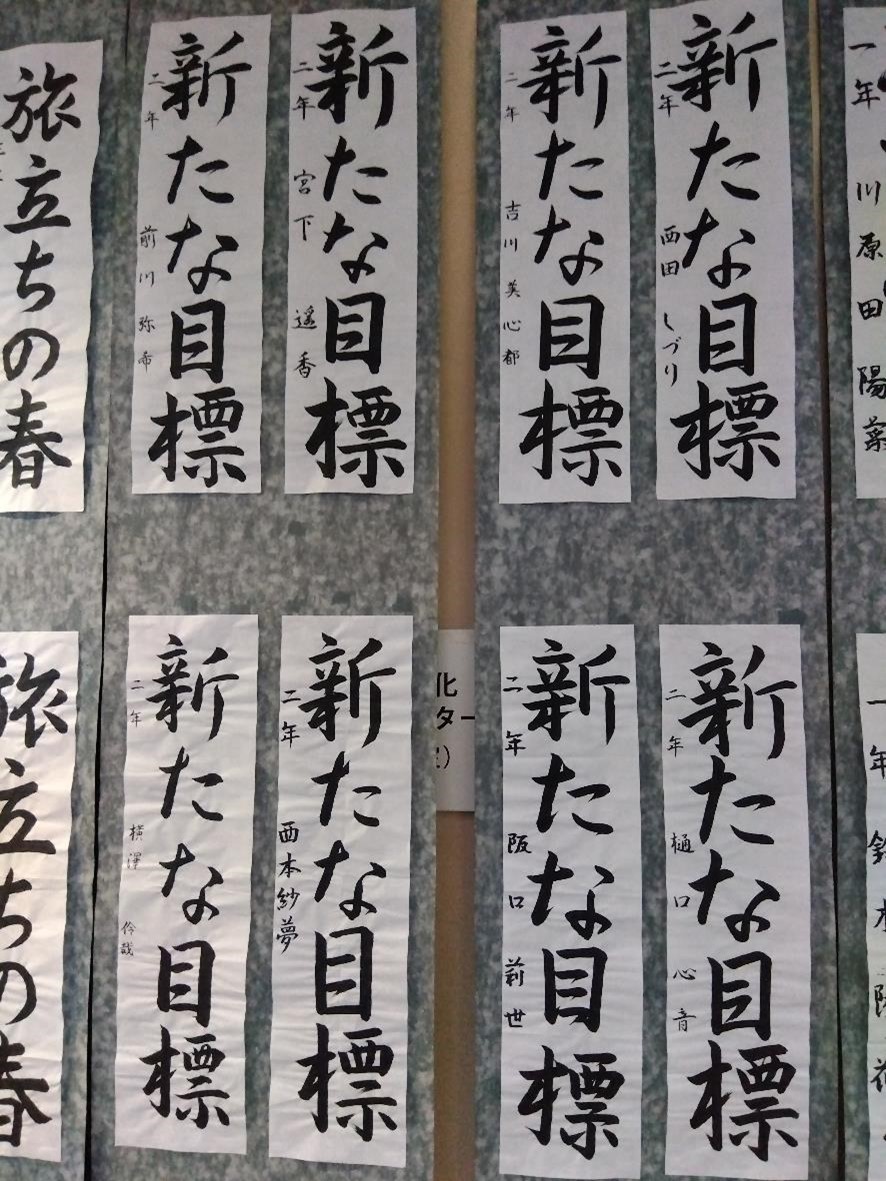 一年 川原田 陽菜
新たな目標
二年 西田 しづり
新たな目標
二年 吉川 美心都
新たな目標
二年 宮下 遥香
新たな目標
二年 前川 弥希
旅立ちの春
一年 鈴木 陽
新たな目標
二年 樋口 心音
新たな目標
二年 阪口 莉世
化
ター
新たな目標
二年 西本紗夢
新たな目標
二年 横澤 伶哉
旅立ちの春